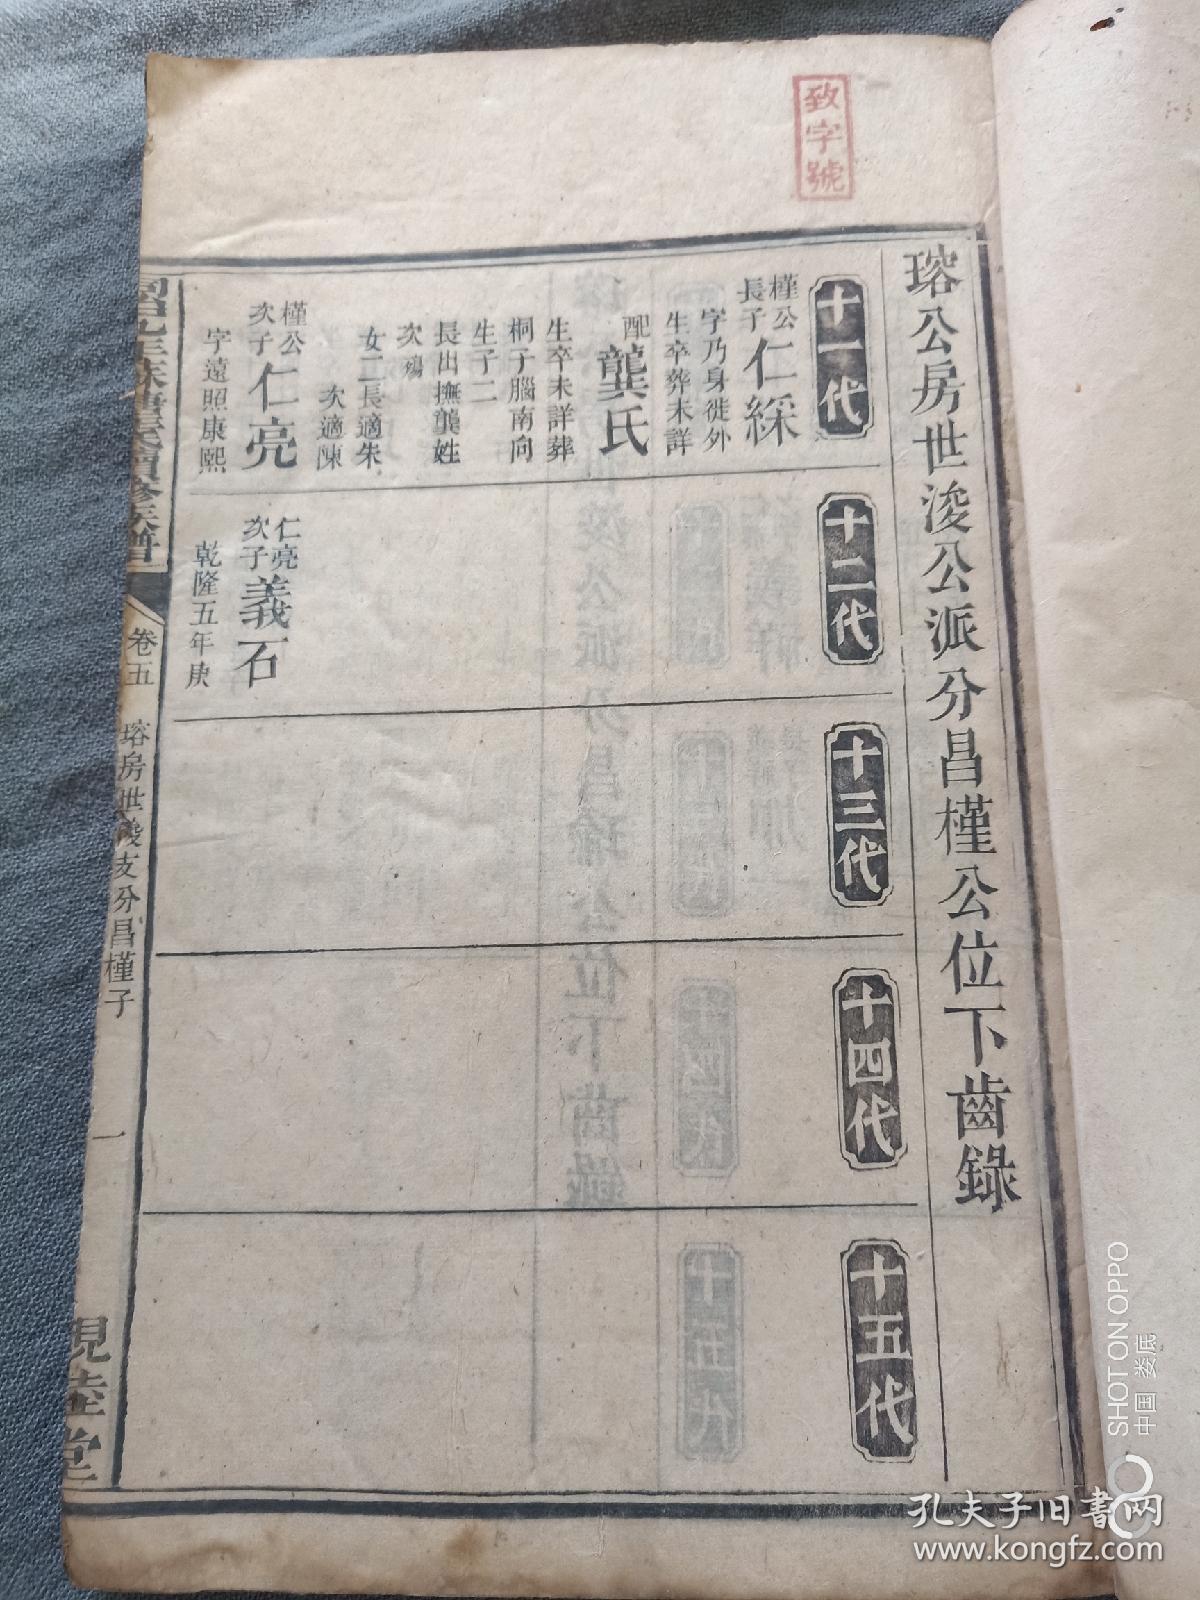 致字號
瑢公房世浚公派分昌槿公位下齒錄
十一代
槿公長子仁綵
字乃身徙外
生卒葬未詳
配龔氏
生卒未詳葬
桐子腦南向
生子二
長出撫龔姓
次殤
女二長適朱
次適陳
槿公次子仁亮
字遠照康熙
十二代
仁亮次子義石
乾隆五年庚
十三代
十四代
十五代
續修族譜
卷五
瑢房世浚支分昌槿子
一
親睦堂
SHOT ON OPPO
中国 娄底
孔夫子旧书网
www.kongfz.com